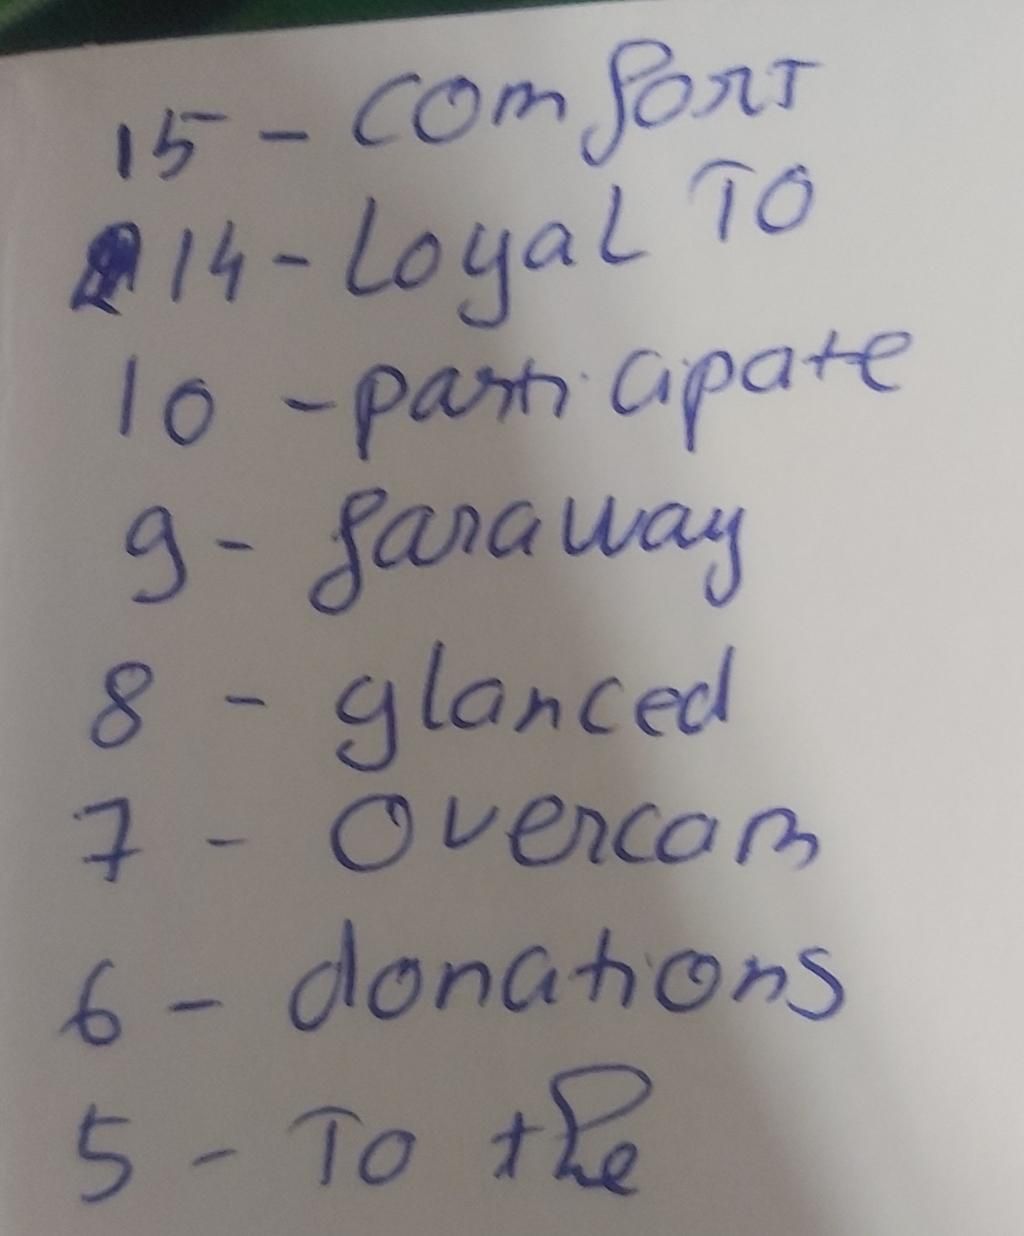 15 - comfort
14 - Loyal TO
10 - participate
9 - faraway
8 - glanced
7 - Overcam
6 - donations
5 - To the